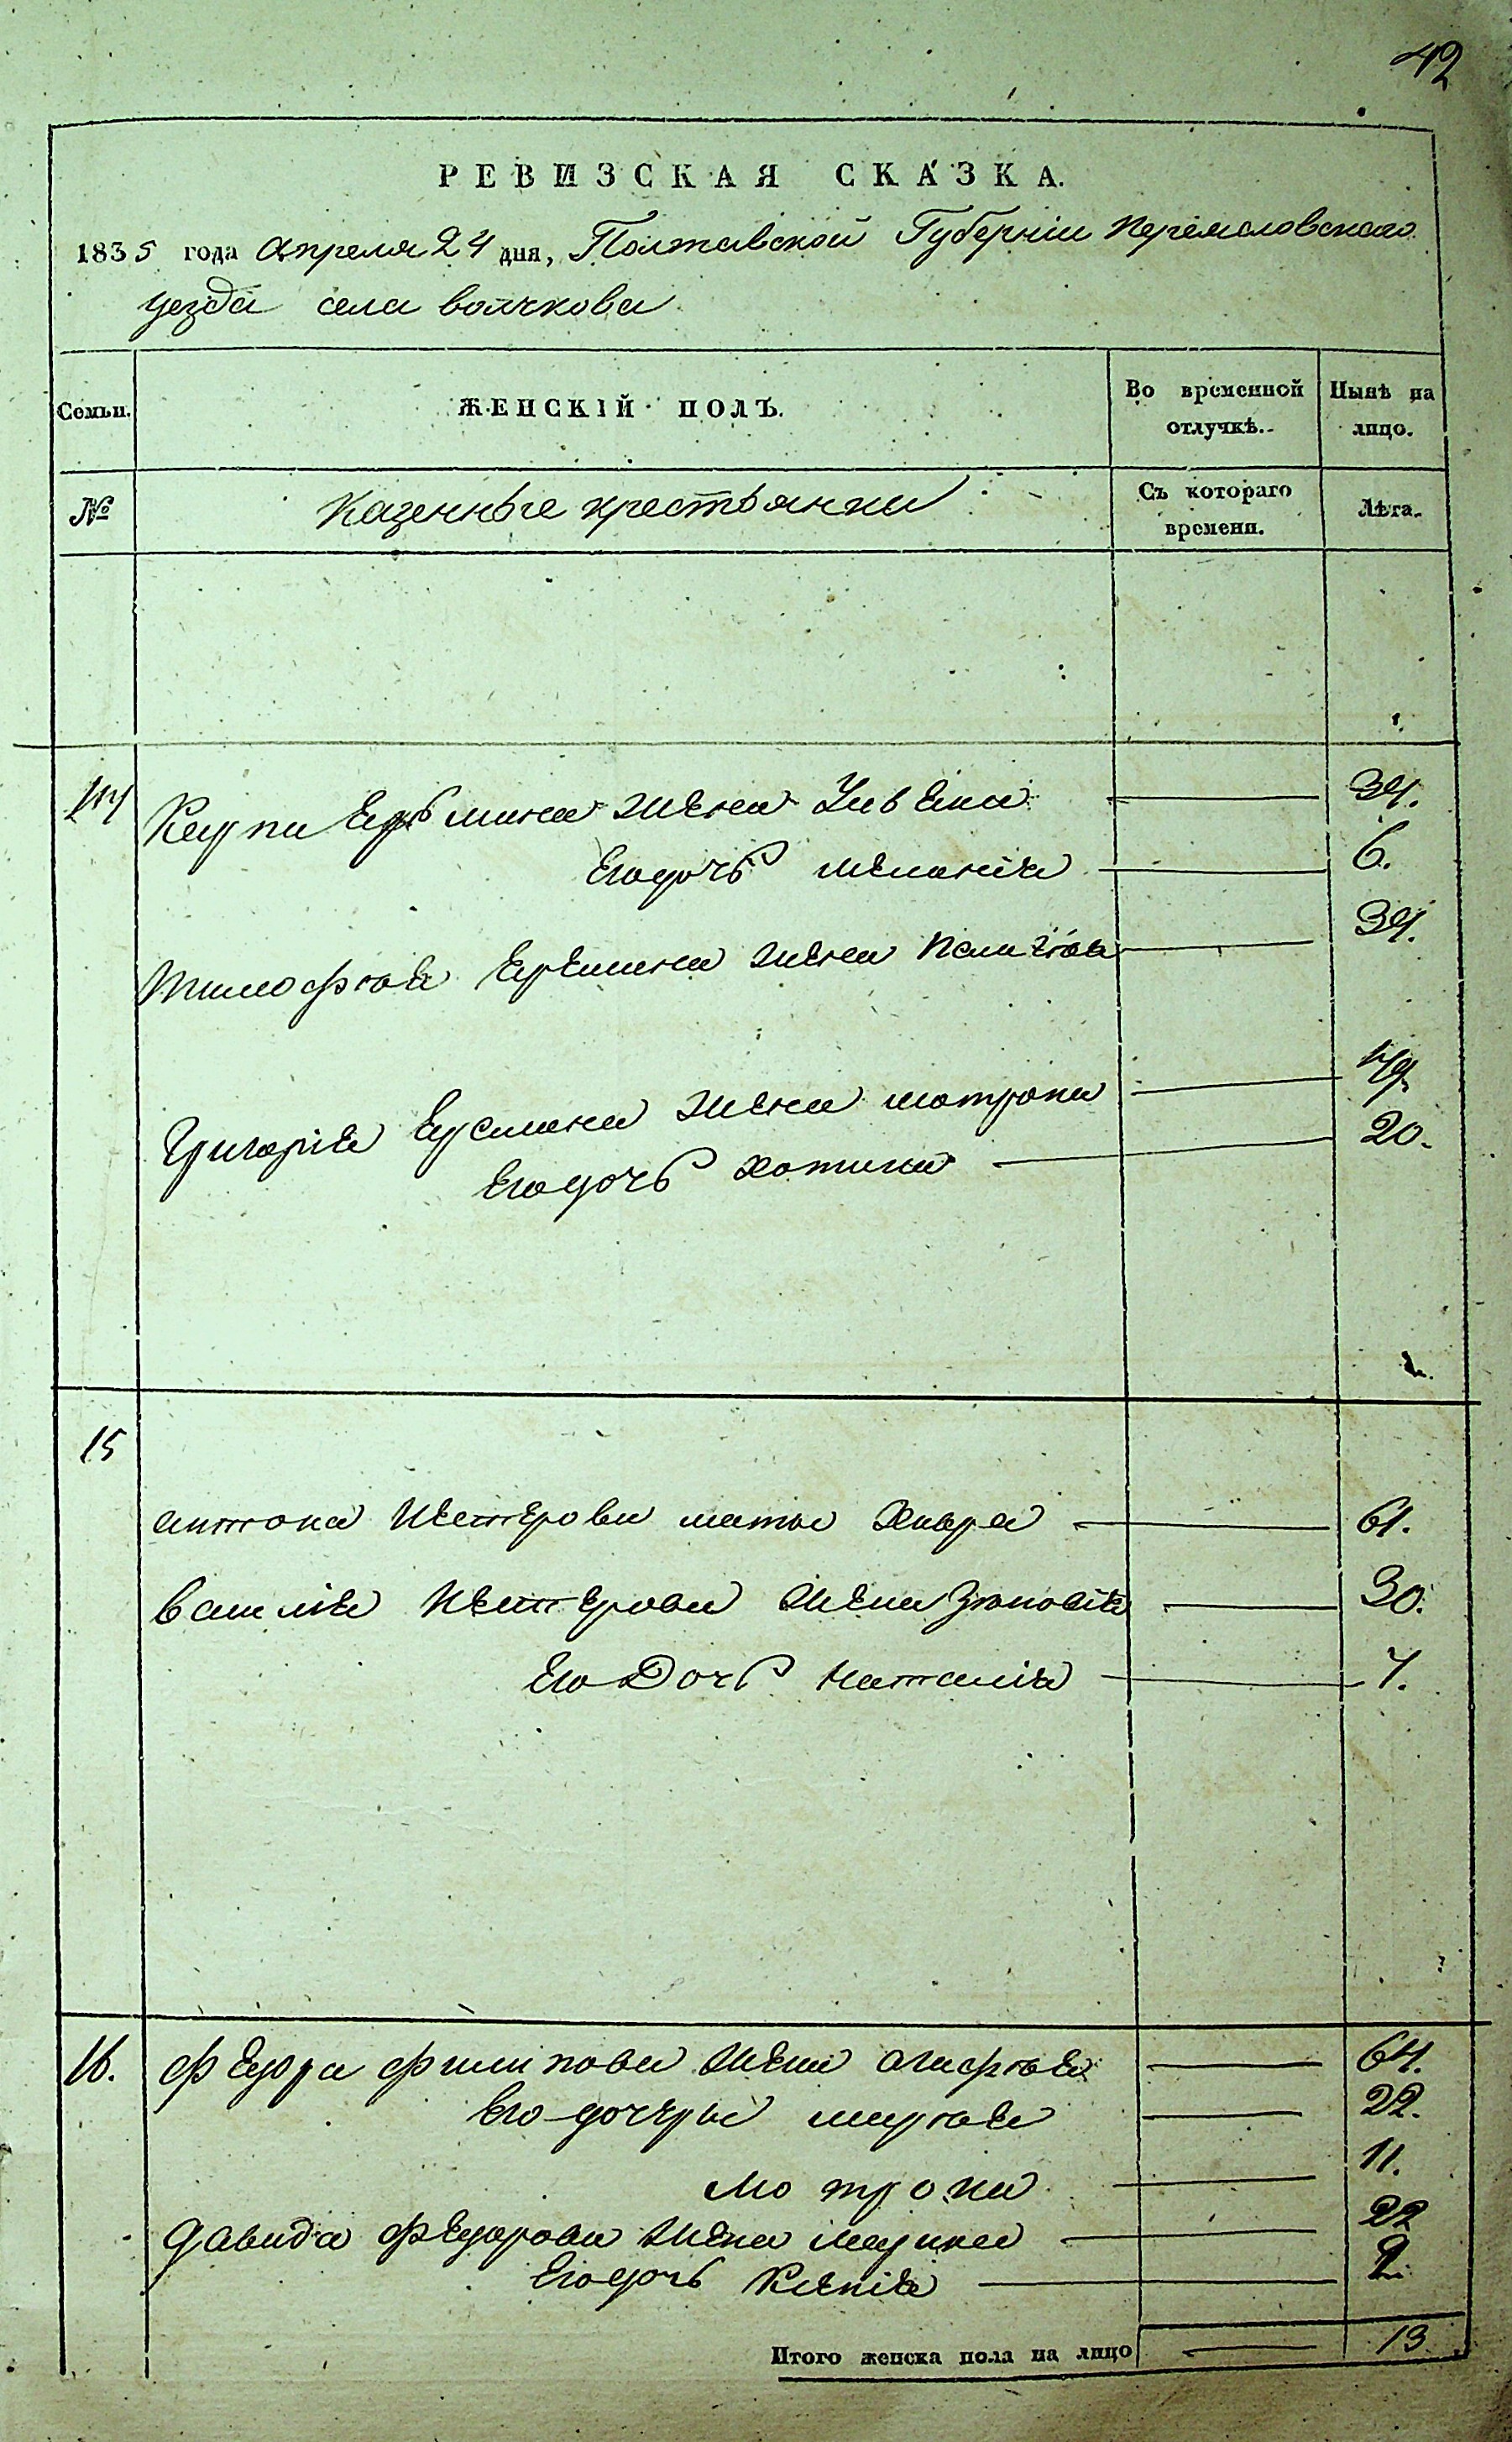 42
РЕВИЗСКАЯ СКАЗКА.
1835 года апреля 24 дня, Полтавской Губерніи Переяславскаго
уезда села волчкова
Семьи. ЖЕНСКІЙ ПОЛЪ. Во временной отлучкѣ. Нынѣ на лицо.
№ Казенные крестьянки Съ котораго времени. Лѣта.
14
Карпа жена 34.
Егодочь меланія 6.
тимофѣя Еремина жена Пелагѣя 34.
Григорія жена мотрона 49.
Егодочь хотина 20.
15
антона Нестерова мать 61.
василія Нестерова жена Зѣновія 30.
Его Дочь наталія 7.
16. Федора филипова жена агафѣя 64.
Его дочеры марѣя 22.
мотрона 11.
давида Федорова жена марина 22
Егодочь Ксенія 2.
Итого женска пола на лицо 13